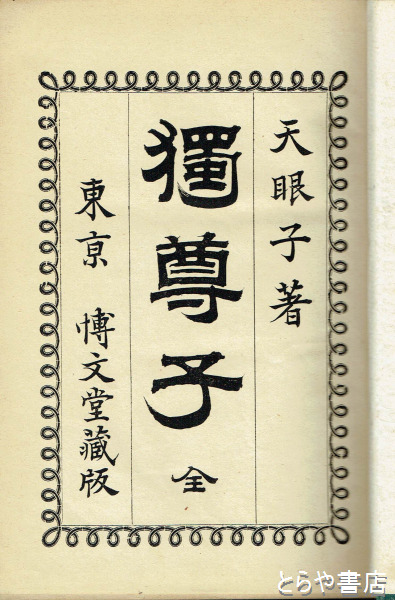 天眼子著
獨尊子
全
東京 博文堂藏版
とらや書店